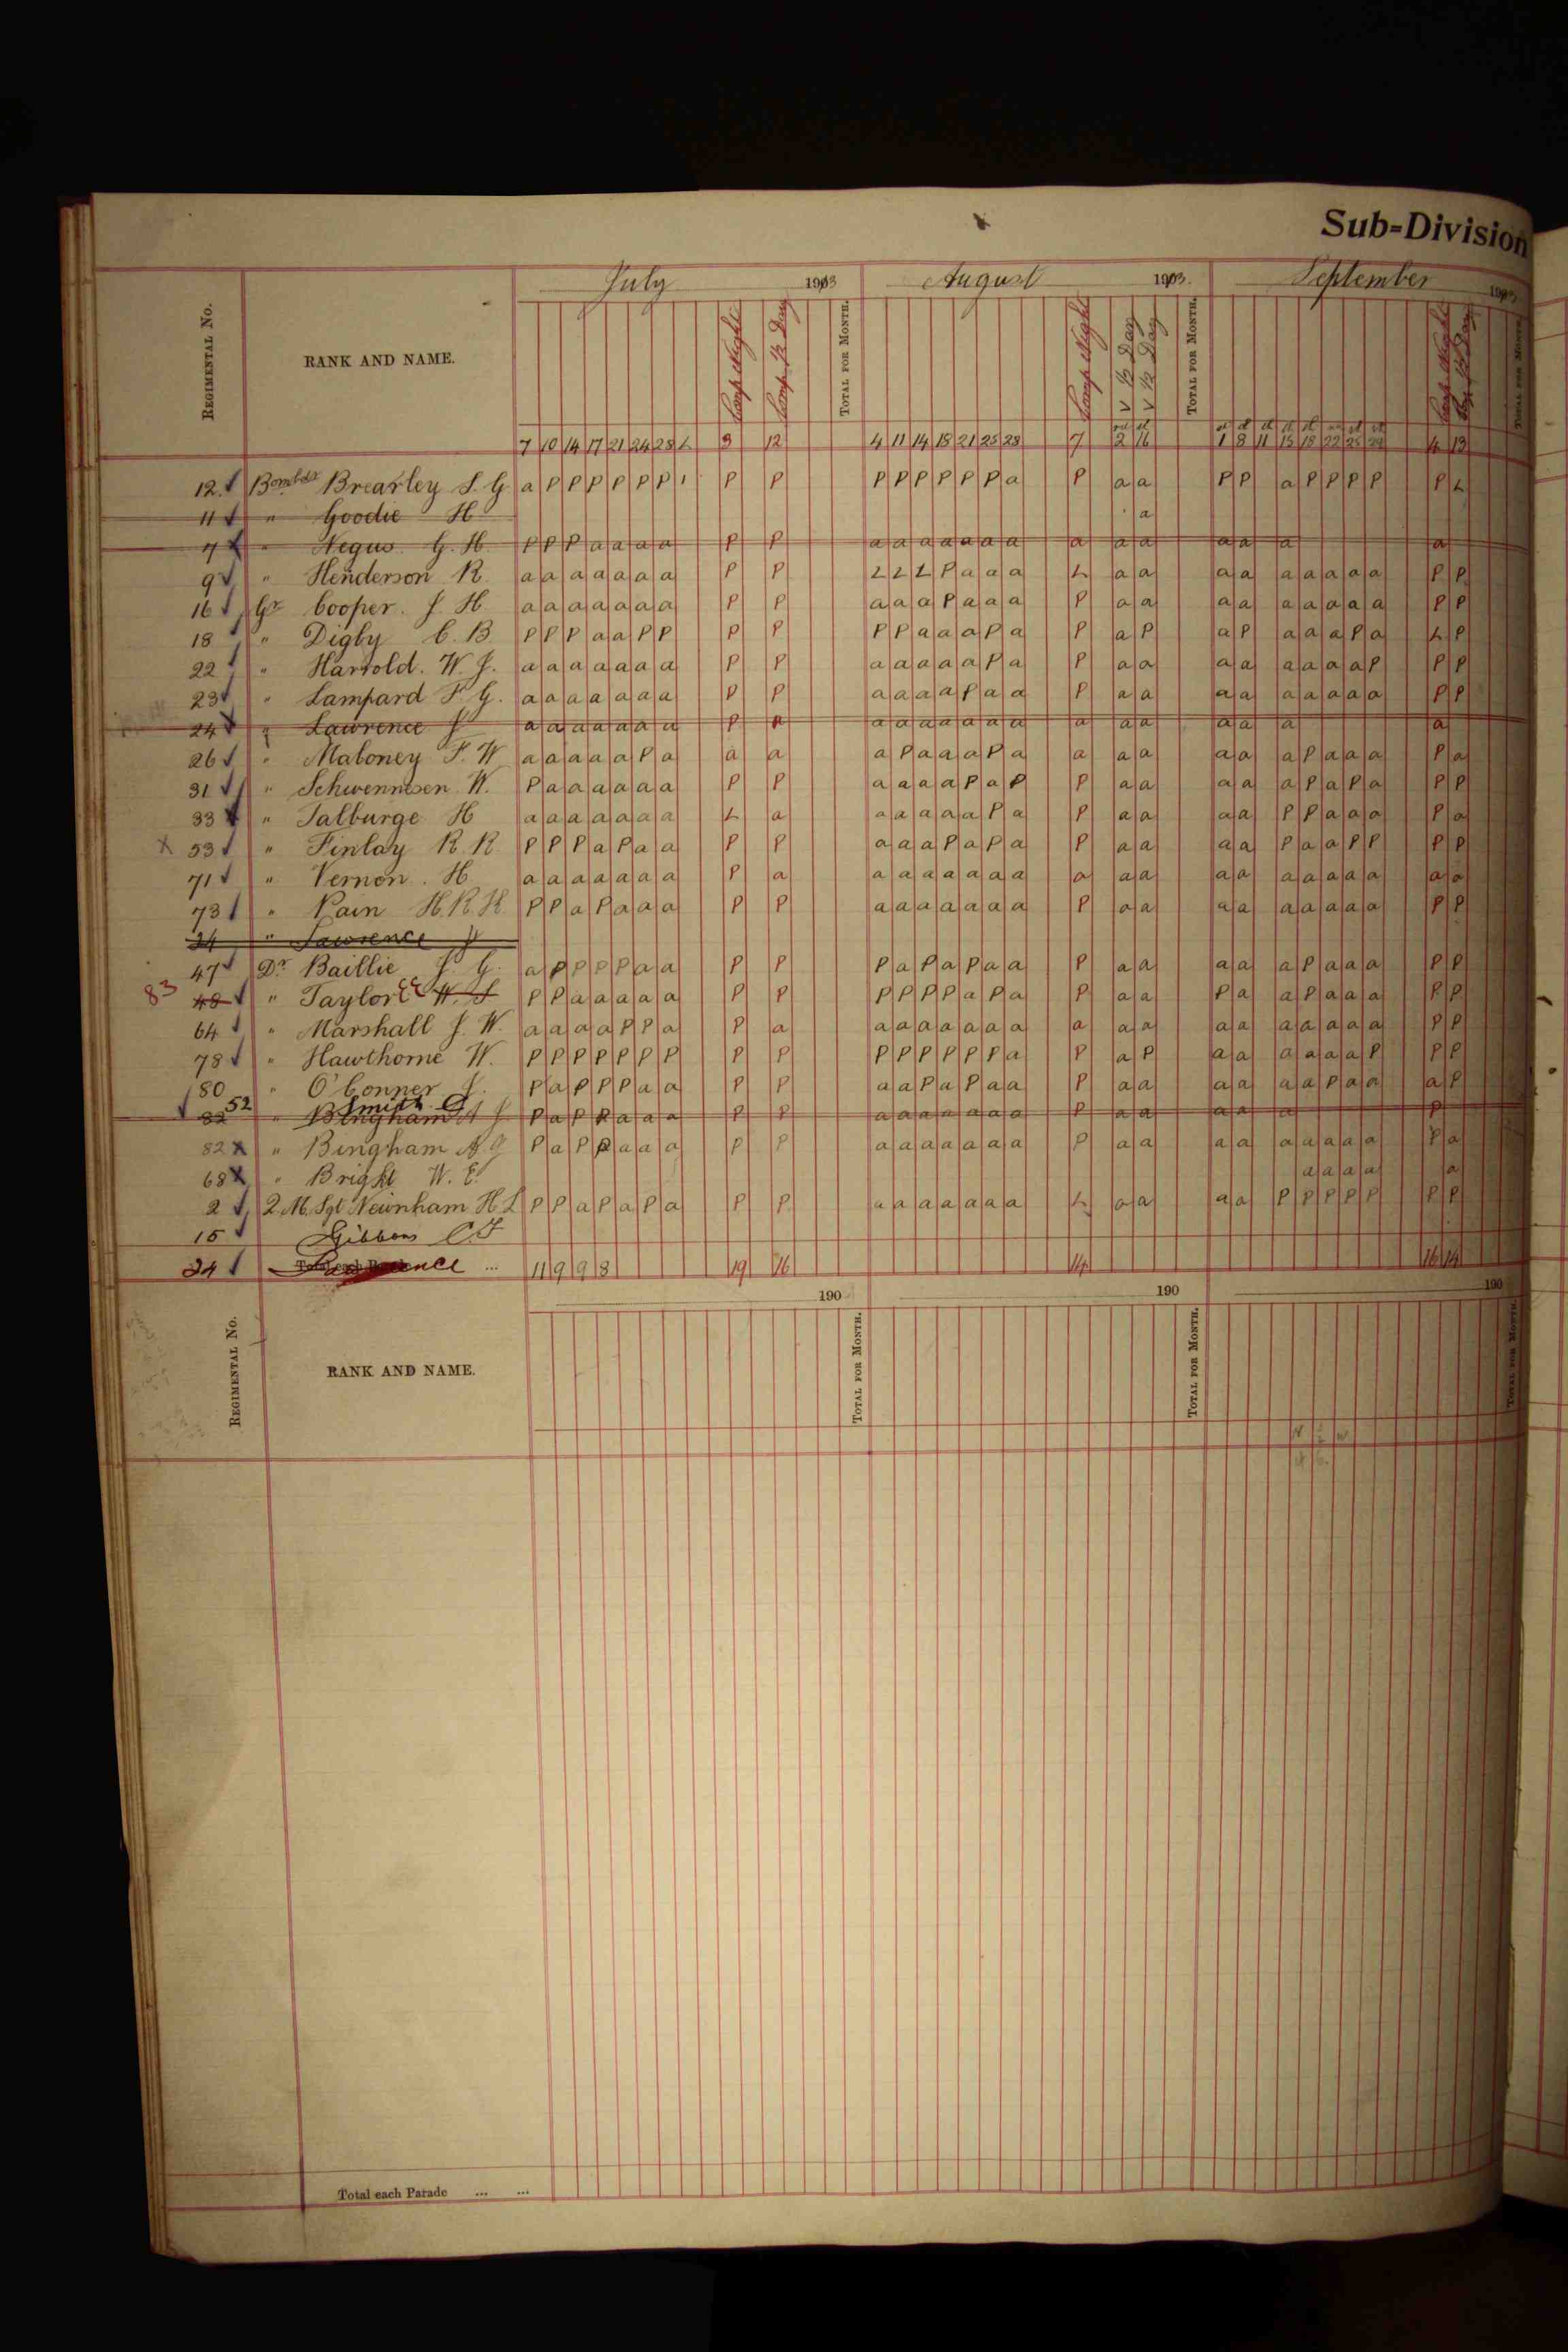 Sub-Division
July 1903 August 1903. September 190
REGIMENTAL No. RANK AND NAME. Comp Night Comp. 1/2 Day TOTAL FOR MONTH. Comp Night V 1/2 Day V 1/2 Day TOTAL FOR MONTH. Comp Night TOTAL FOR MONTH.
7 10 14 17 21 24 28 L 3 12 4 11 14 18 21 25 28 7 2 16 1 8 11 15 18 22 25 29 4 13
12 Bombdr Brearley S. G. a P P P P P P 1 P P P P P P P P a P a a P P a P P P P P L
11 " Goodie H a
7 " Negus. G. H. P P P a a a a P P a a a a a a a a a a a a a a
9 " Henderson R a a a a a a a P P L L L P a a a L a a a a a a a a a P P
16 Gr Cooper. J. H a a a a a a a P P a a a P a a a P a a a a a a a a a P P
18 " Digby C. B. P P P a a P P P P P P a a a P a P a P a P a a a P a L P
22 " Harrold. W. J. a a a a a a a P P a a a a a P a P a a a a a a a a P P P
23 " Lampard F. G. a a a a a a a P P a a a a P a a P a a a a a a a a a P P
24 " Lawrence J a a a a a a a P a a a a a a a a a a a a a a a
26 " Maloney F. W a a a a a P a a a a P a a a P a a a a a a a P a a a P a
31 " Schwennesen W. P a a a a a a P P a a a a P a P P a a a a a P a P a P P
33 " Talburge H a a a a a a a L a a a a a a P a P a a a a P P a a a P a
53 " Finlay R. R P P P a P a a P P a a a P a P a P a a a a P a a P P P P
71 " Vernon. H. a a a a a a a P a a a a a a a a a a a a a a a a a a a a
73 " Pain H. R. H. P P a P a a a P P a a a a a a a P a a a a a a a a a P P
24 " Lawrence J
47 Dr Baillie J. G. a P P P P a a P P P a P a P a a P a a a a a P a a a P P
83 48 " Taylor E E W. S P P a a a a a P P P P P P a P a P a a P a a P a a a P P
64 " Marshall J. W. a a a a P P a P a a a a a a a a a a a a a a a a a a P P
78 " Hawthorne W. P P P P P P P P P P P P P P P a P a P a a a a a a P P P
80 " O'Conner J. P a P P P a a P P a a P a P a a P a a a a a a P a a a P
52 Smith
82 " Bingham A J P a P P a a a P P a a a a a a a P a a a a a P
82 " Bingham A J P a P P a a a P P a a a a a a a P a a a a a a a a a P a
68 " Bright W. E. a a a a a
2 Q. M. Sgt Newnham H. L P P a P a P a P P a a a a a a a L a a a a P P P P P P P
15 Gibbons C. F
24 Lawrence ... 11 9 9 8 19 16 14 16 14
190 190 190
REGIMENTAL No. RANK AND NAME. TOTAL FOR MONTH. TOTAL FOR MONTH. TOTAL FOR MONTH.
Total each Parade ... ...